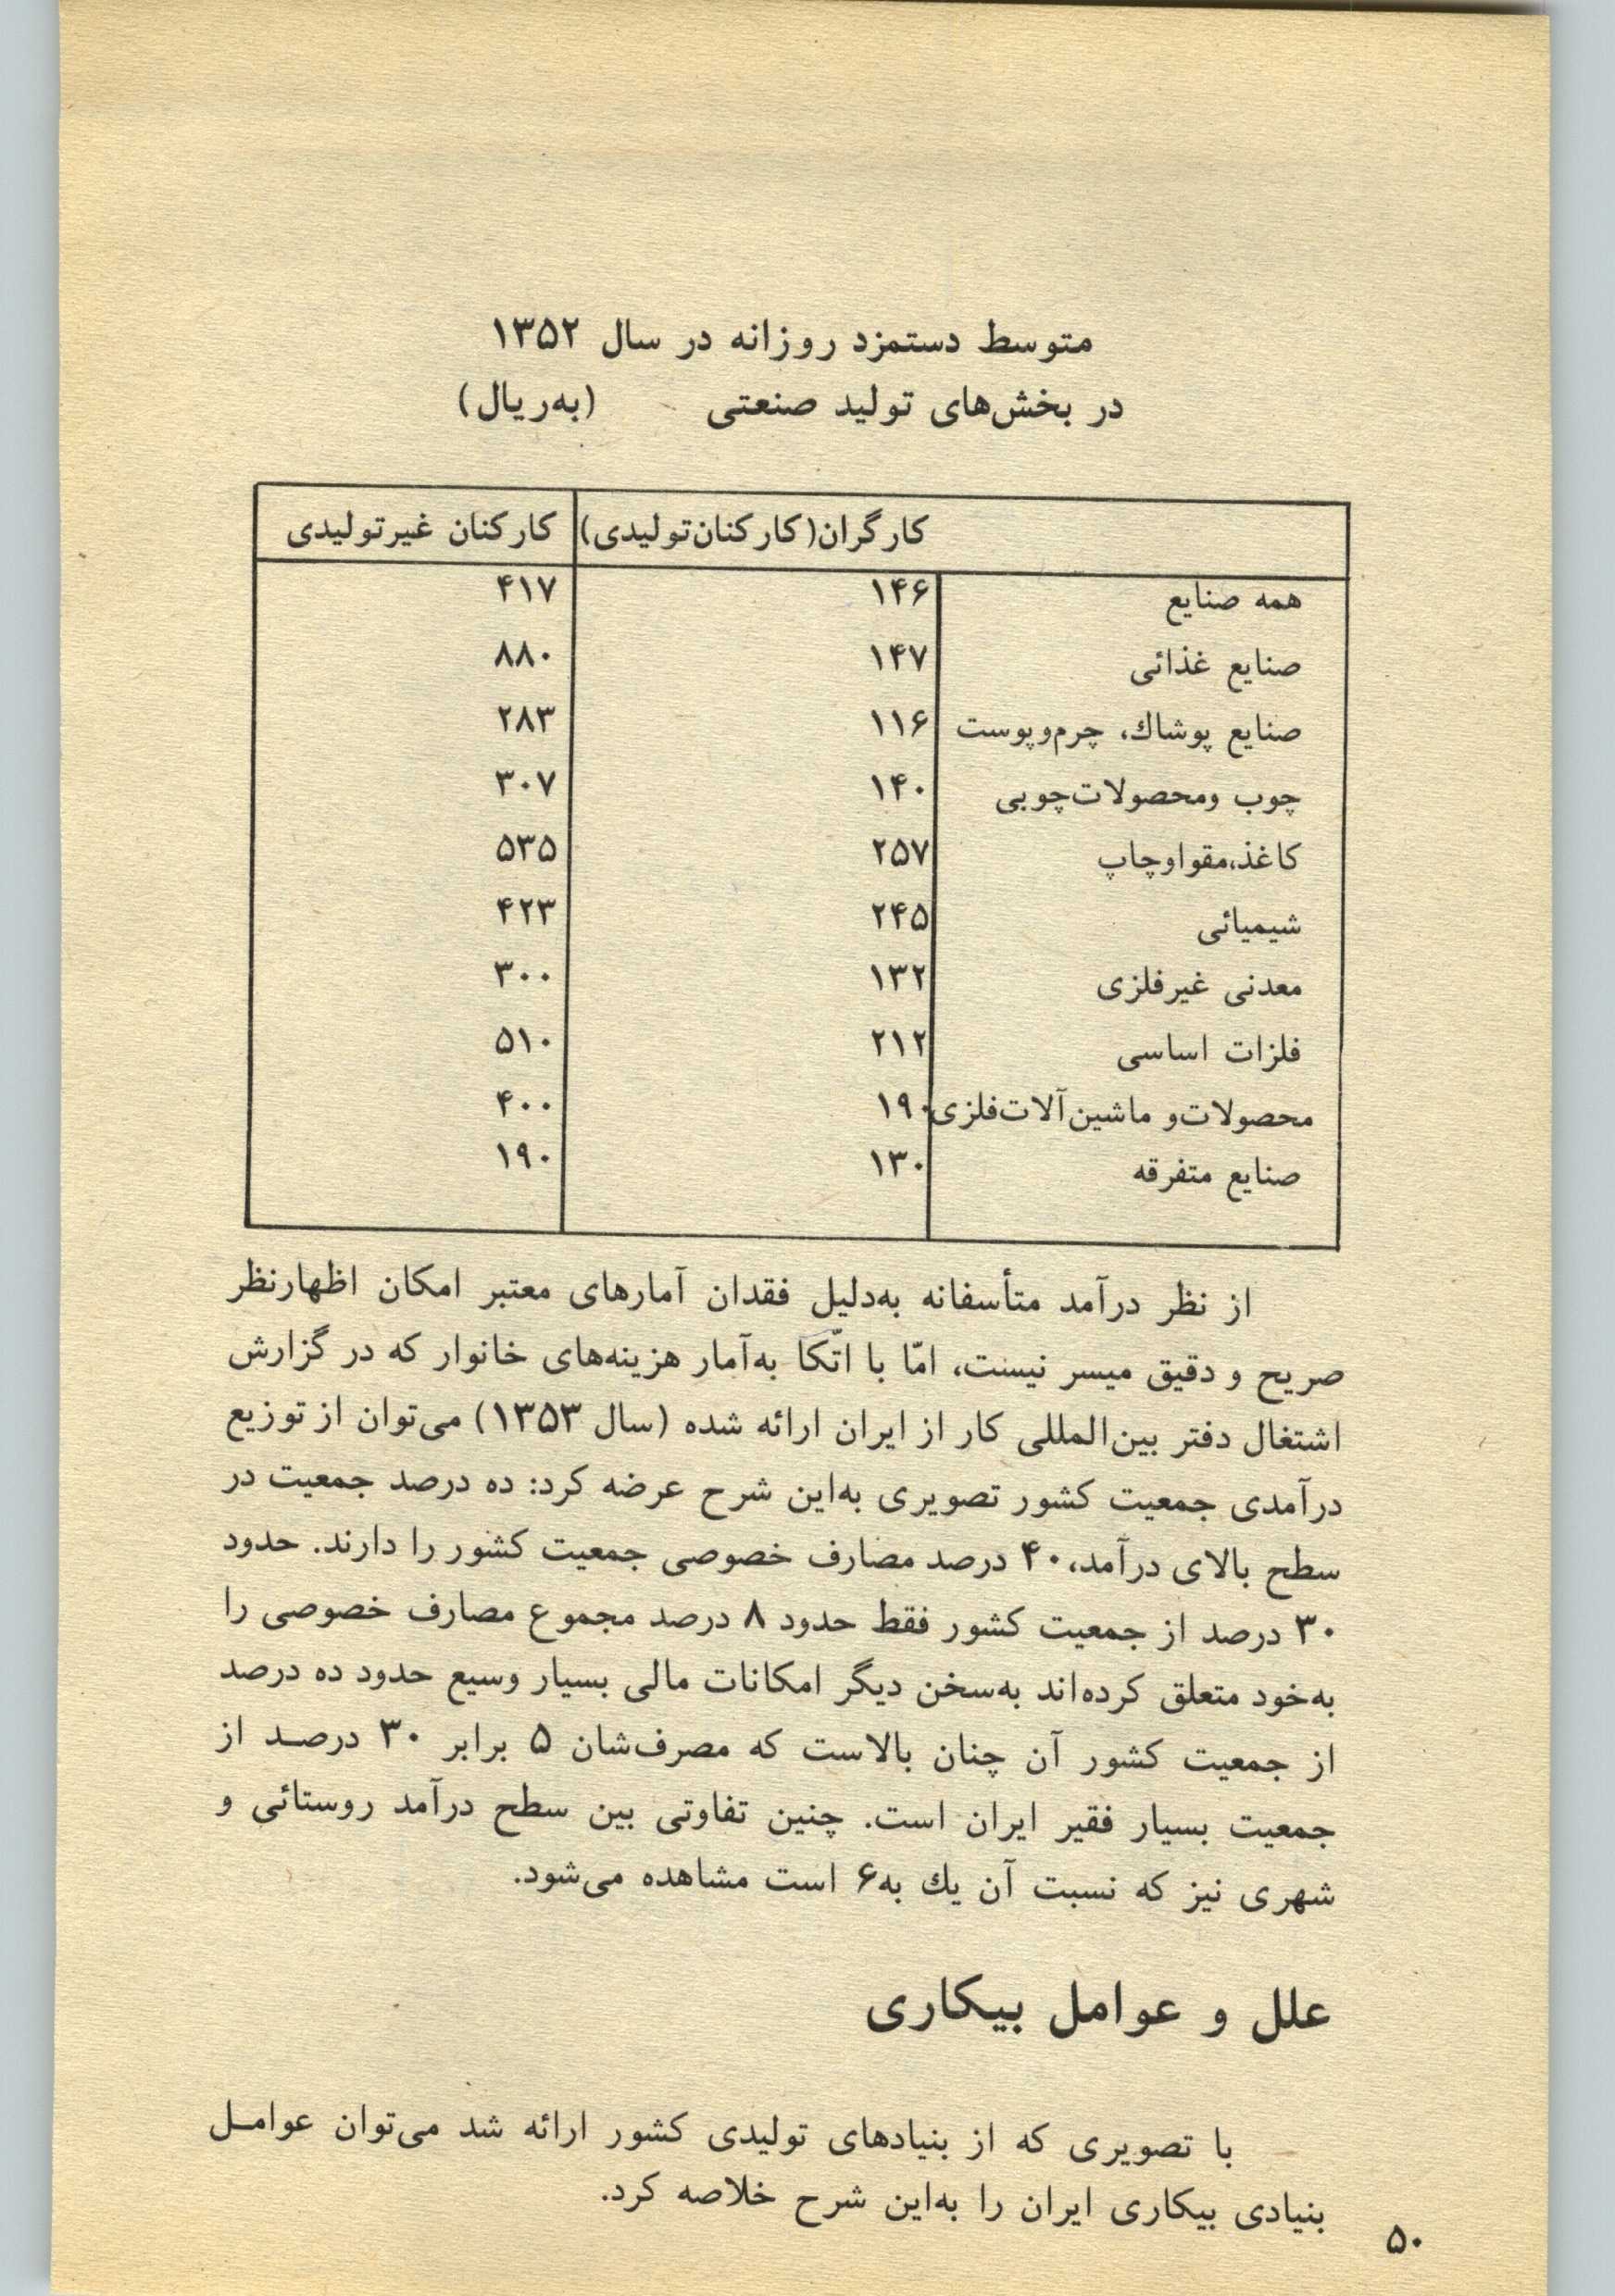 متوسط دستمزد روزانه در سال ۱۳۵۲
در بخش‌های تولید صنعتی (به‌ریال)
کارگران(کارکنان‌تولیدی) کارکنان غیرتولیدی
همه صنایع ۱۴۶ ۴۱۷
صنایع غذائی ۱۴۷ ۸۸۰
صنایع پوشاك، چرم‌وپوست ۱۱۶ ۲۸۳
چوب ومحصولات‌چوبی ۱۴۰ ۳۰۷
کاغذ،مقواوچاپ ۲۵۷ ۵۳۵
شیمیائی ۲۴۵ ۴۲۳
معدنی غیرفلزی ۱۳۲ ۳۰۰
فلزات اساسی ۲۱۲ ۵۱۰
محصولات‌و ماشین‌آلات‌فلزی ۱۹۰ ۴۰۰
صنایع متفرقه ۱۳۰ ۱۹۰
از نظر درآمد متأسفانه به‌دلیل فقدان آمارهای معتبر امکان اظهارنظر
صریح و دقیق میسر نیست، امّا با اتّکا به‌آمار هزینه‌های خانوار که در گزارش
اشتغال دفتر بین‌المللی کار از ایران ارائه شده (سال ۱۳۵۳) می‌توان از توزیع
درآمدی جمعیت کشور تصویری به‌این شرح عرضه کرد: ده درصد جمعیت در
سطح بالای درآمد، ۴۰ درصد مصارف خصوصی جمعیت کشور را دارند. حدود
۳۰ درصد از جمعیت کشور فقط حدود ۸ درصد مجموع مصارف خصوصی را
به‌خود متعلق کرده‌اند به‌سخن دیگر امکانات مالی بسیار وسیع حدود ده درصد
از جمعیت کشور آن چنان بالاست که مصرف‌شان ۵ برابر ۳۰ درصـد از
جمعیت بسیار فقیر ایران است. چنین تفاوتی بین سطح درآمد روستائی و
شهری نیز که نسبت آن یك به۶ است مشاهده می‌شود.
علل و عوامل بیکاری
با تصویری که از بنیادهای تولیدی کشور ارائه شد می‌توان عوامـل
بنیادی بیکاری ایران را به‌این شرح خلاصه کرد.
۵۰